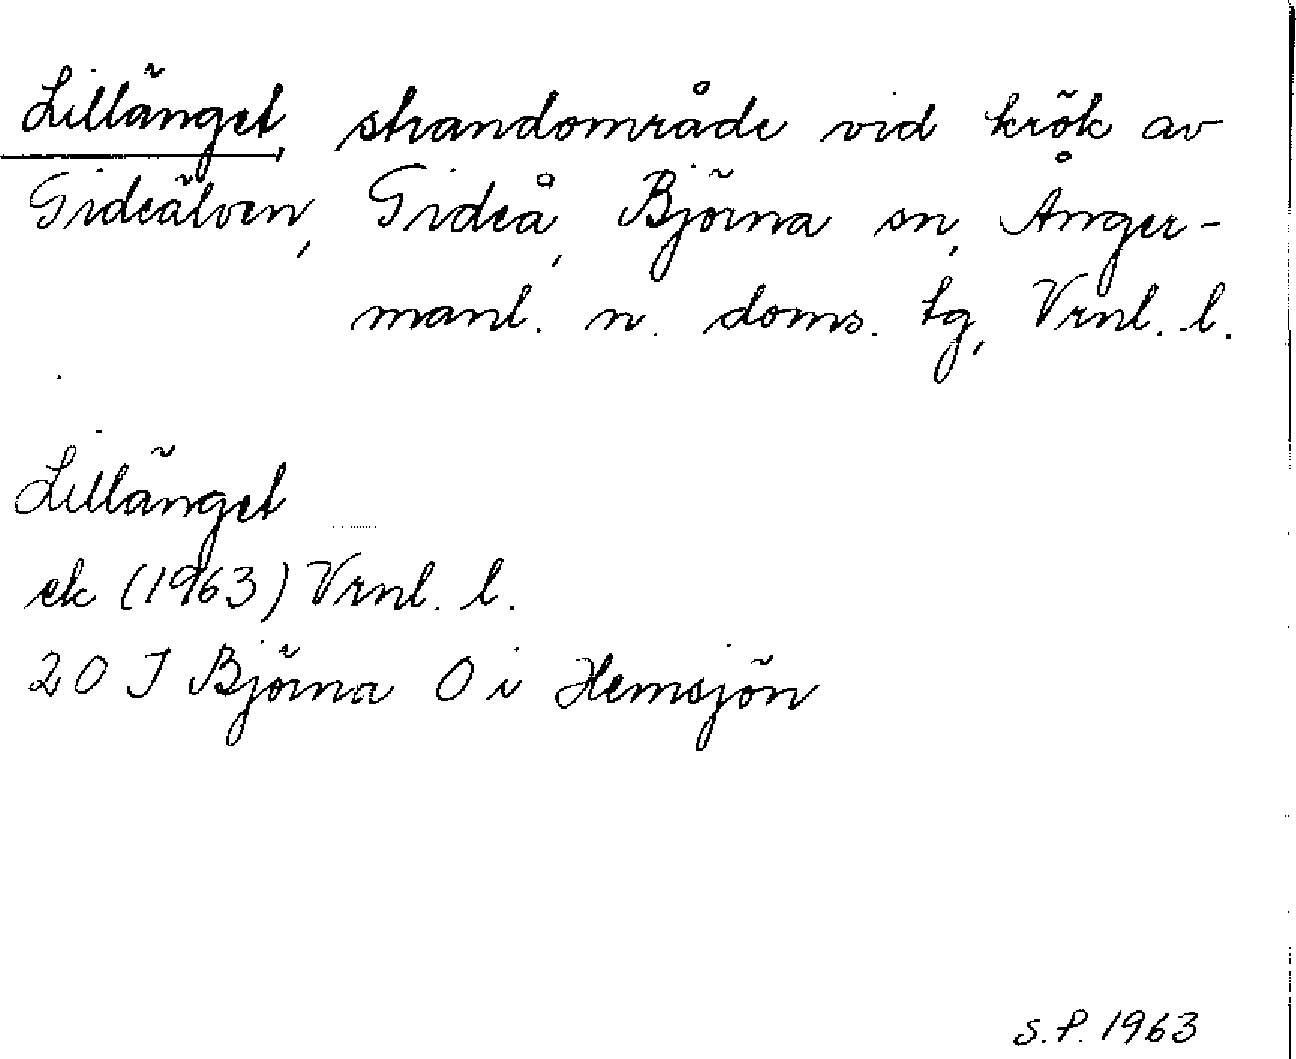 Lillänget, strandområde vid krök av
Gideälven, Gideå, Björna sn, Ånger-
manl. n. doms. tg, Vrnl. l.
Lillänget
ek (1963) Vrnl. l.
20 J Björna O i Hemsjön
S.P. 1963